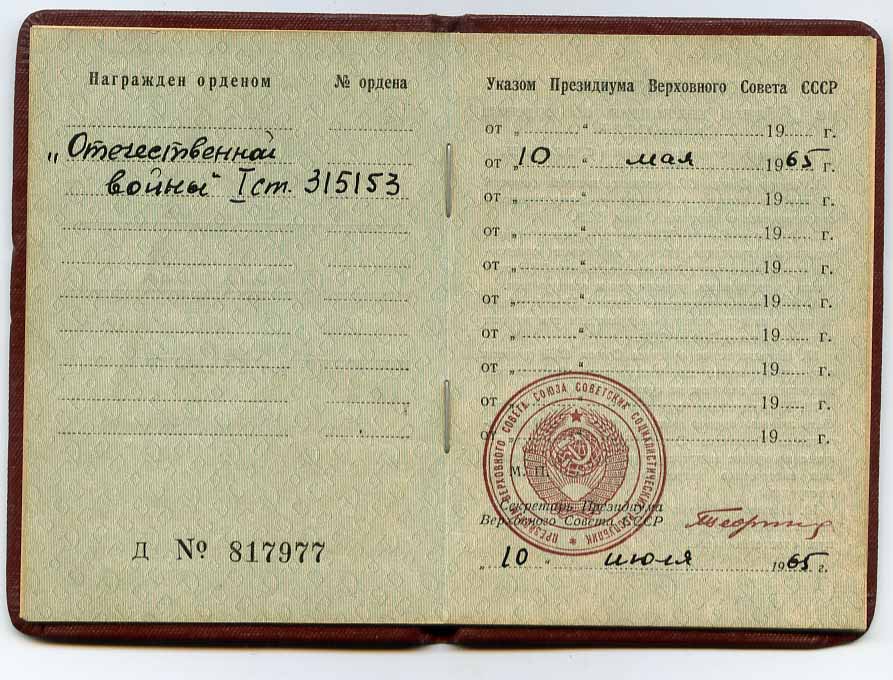 Награжден орденом № ордена
„Отечественной
войны“ I ст. 315153
Д № 817977
Указом Президиума Верховного Совета СССР
от „ “ 19 г.
от „10 “ мая 1965 г.
от „ “ 19 г.
от „ “ 19 г.
от „ “ 19 г.
от „ “ 19 г.
от „ “ 19 г.
от „ “ 19 г.
от „ “ 19 г.
от „ “ 19 г.
М. П.
ПРЕЗИДИУМ ВЕРХОВНОГО СОВЕТА СОЮЗА СОВЕТСКИХ СОЦИАЛИСТИЧЕСКИХ РЕСПУБЛИК
Секретарь Президиума
Верховного Совета СССР
„10 “ июля 1965 г.